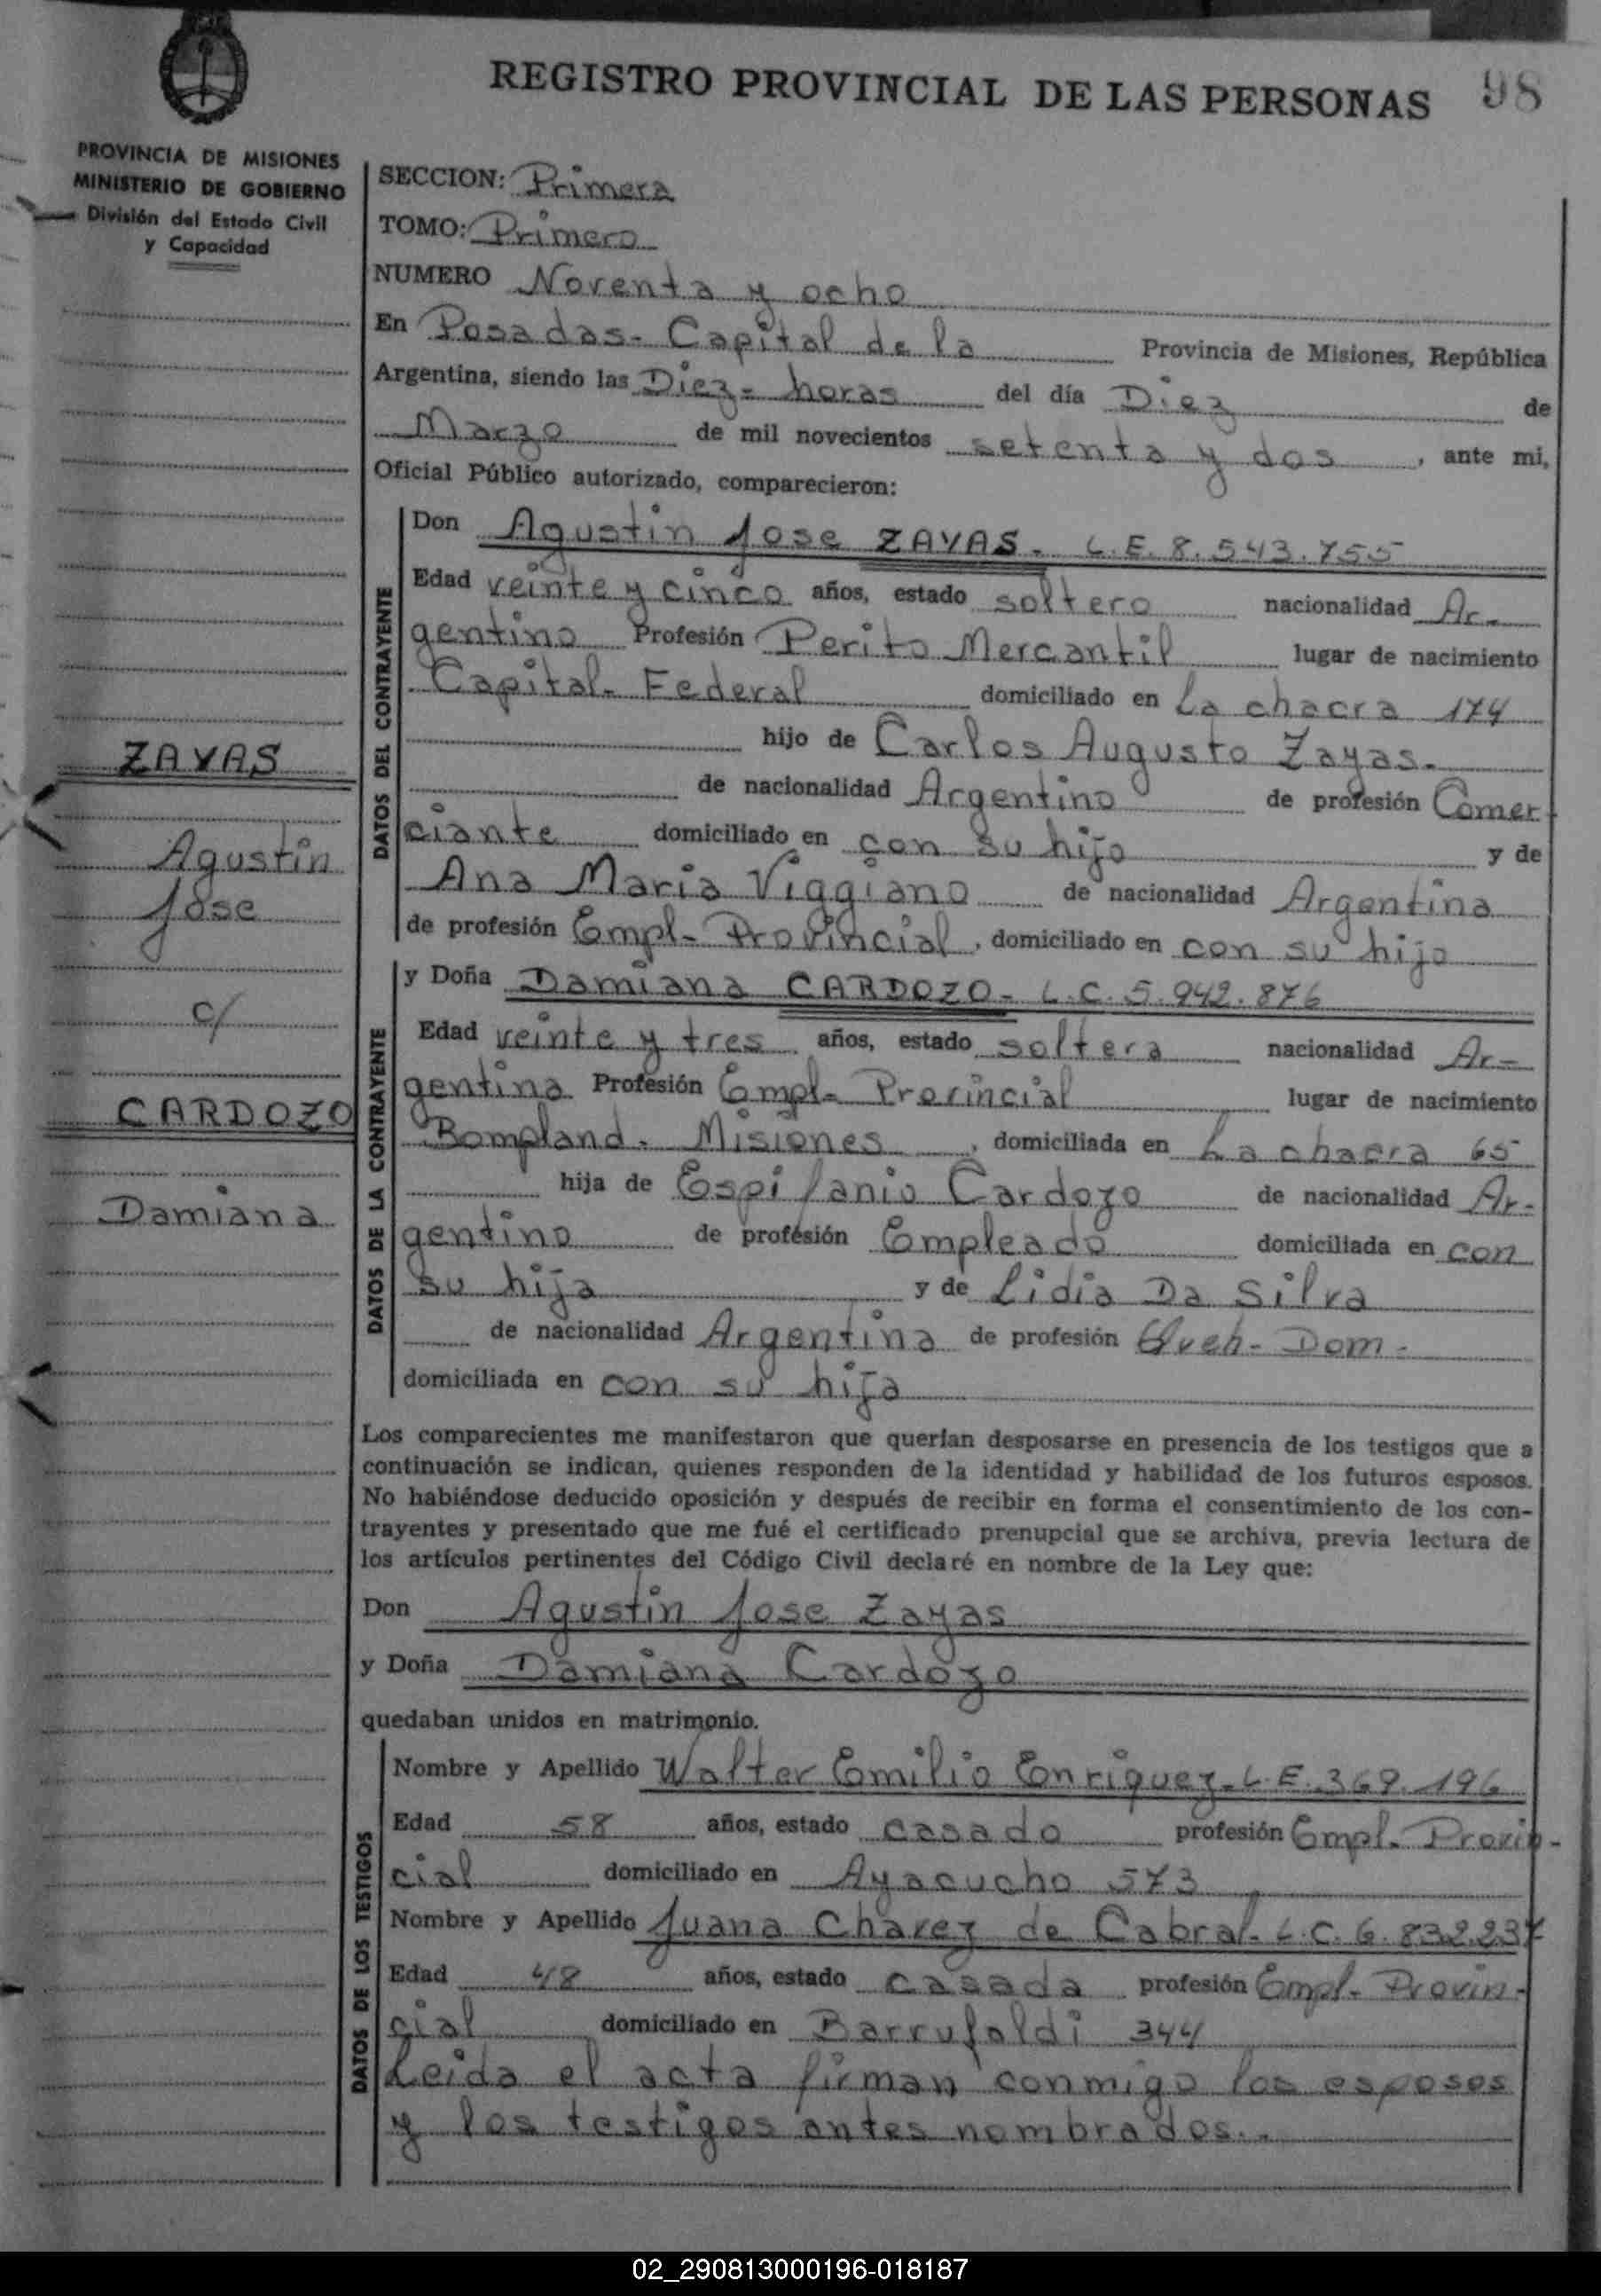 REGISTRO PROVINCIAL DE LAS PERSONAS 98
PROVINCIA DE MISIONES
MINISTERIO DE GOBIERNO
División del Estado Civil
y Capacidad
ZAYAS
Agustin
Jose
c/
CARDOZO
Damiana
SECCION: Primera
TOMO: Primero
NUMERO Noventa y ocho
En Posadas- Capital de la Provincia de Misiones, República
Argentina, siendo las Diez- horas del día Diez de
Marzo de mil novecientos setenta y dos, ante mi,
Oficial Público autorizado, comparecieron:
DATOS DEL CONTRAYENTE
Don Agustin Jose ZAYAS- L.E. 8.543.755
Edad veinte y cinco años, estado soltero nacionalidad Ar-
gentino Profesión Perito Mercantil lugar de nacimiento
Capital- Federal domiciliado en La chacra 174
hijo de Carlos Augusto Zayas-
de nacionalidad Argentino de profesión Comer-
ciante domiciliado en con su hijo y de
Ana Maria Viggiano de nacionalidad Argentina
de profesión Empl- Provincial, domiciliado en con su hijo
DATOS DE LA CONTRAYENTE
y Doña Damiana CARDOZO- L.C. 5.942.876
Edad veinte y tres años, estado soltera nacionalidad Ar-
gentina Profesión Empl- Provincial lugar de nacimiento
Bompland- Misiones, domiciliada en La chacra 65
hija de Espifanio Cardozo de nacionalidad Ar-
gentino de profésión Empleado domiciliada en con
su hija y de Lidia Da Silva
de nacionalidad Argentina de profesión Queh- Dom-
domiciliada en con su hija
Los comparecientes me manifestaron que querían desposarse en presencia de los testigos que a
continuación se indican, quienes responden de la identidad y habilidad de los futuros esposos.
No habiéndose deducido oposición y después de recibir en forma el consentimiento de los con-
trayentes y presentado que me fué el certificado prenupcial que se archiva, previa lectura de
los artículos pertinentes del Código Civil declaré en nombre de la Ley que:
Don Agustin Jose Zayas
y Doña Damiana Cardozo
quedaban unidos en matrimonio.
DATOS DE LOS TESTIGOS
Nombre y Apellido Walter Emilio Enriquez- L.E. 369.196
Edad 58 años, estado casado profesión Empl- Provin-
cial domiciliado en Ayacucho 573
Nombre y Apellido Juana Chavez de Cabral- L.C. 6.832.237
Edad 48 años, estado casada profesión Empl- Provin-
cial domiciliado en Barrufaldi 344
Leida el acta firman conmigo los esposos
y los testigos antes nombrados..
02_290813000196-018187